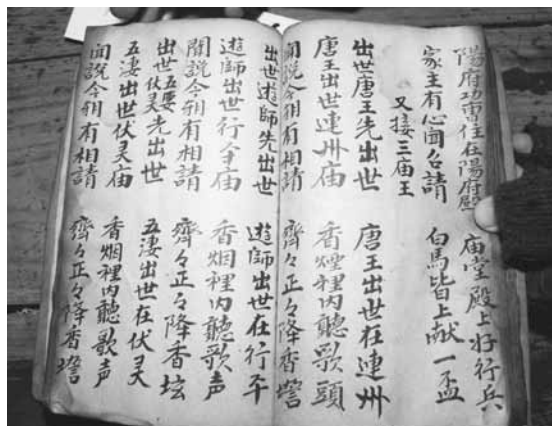 陽府功曹住在陽府殿 庙堂殿上好行兵
家主有心面名請 白馬皆上献一盃
又接三庙王
出世唐王先出世 唐王出世在連州
唐王出世連州庙 香煙裡内聽歌頭
闻說今朝有相請 齊々正々降香壇
出世遊師先出世 遊師出世在行平
遊師出世行平庙 香烟裡内聽歌声
聞說今朝有相請 齊々正々降香坛
出世五婆伏灵先出世 五凄出世在伏灵
五凄出世伏灵庙 香烟裡内聽歌声
闻說今朝有相請 齊々正々降香壇